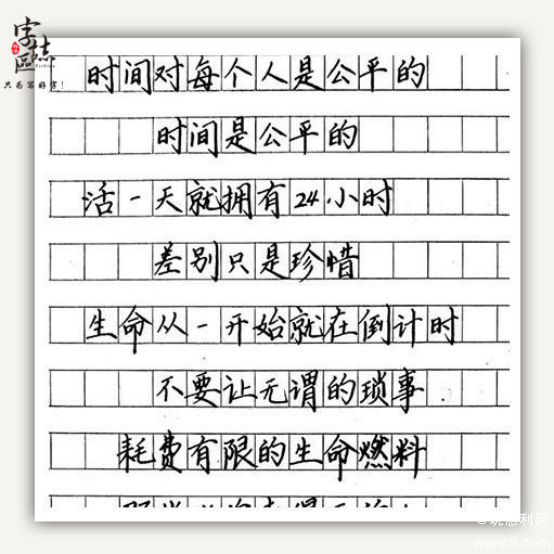 字志區
只为写好字!
时间对每个人是公平的
时间是公平的
活一天就拥有24小时
差别只是珍惜
生命从一开始就在倒计时
不要让无谓的琐事
耗费有限的生命燃料
wancili.com